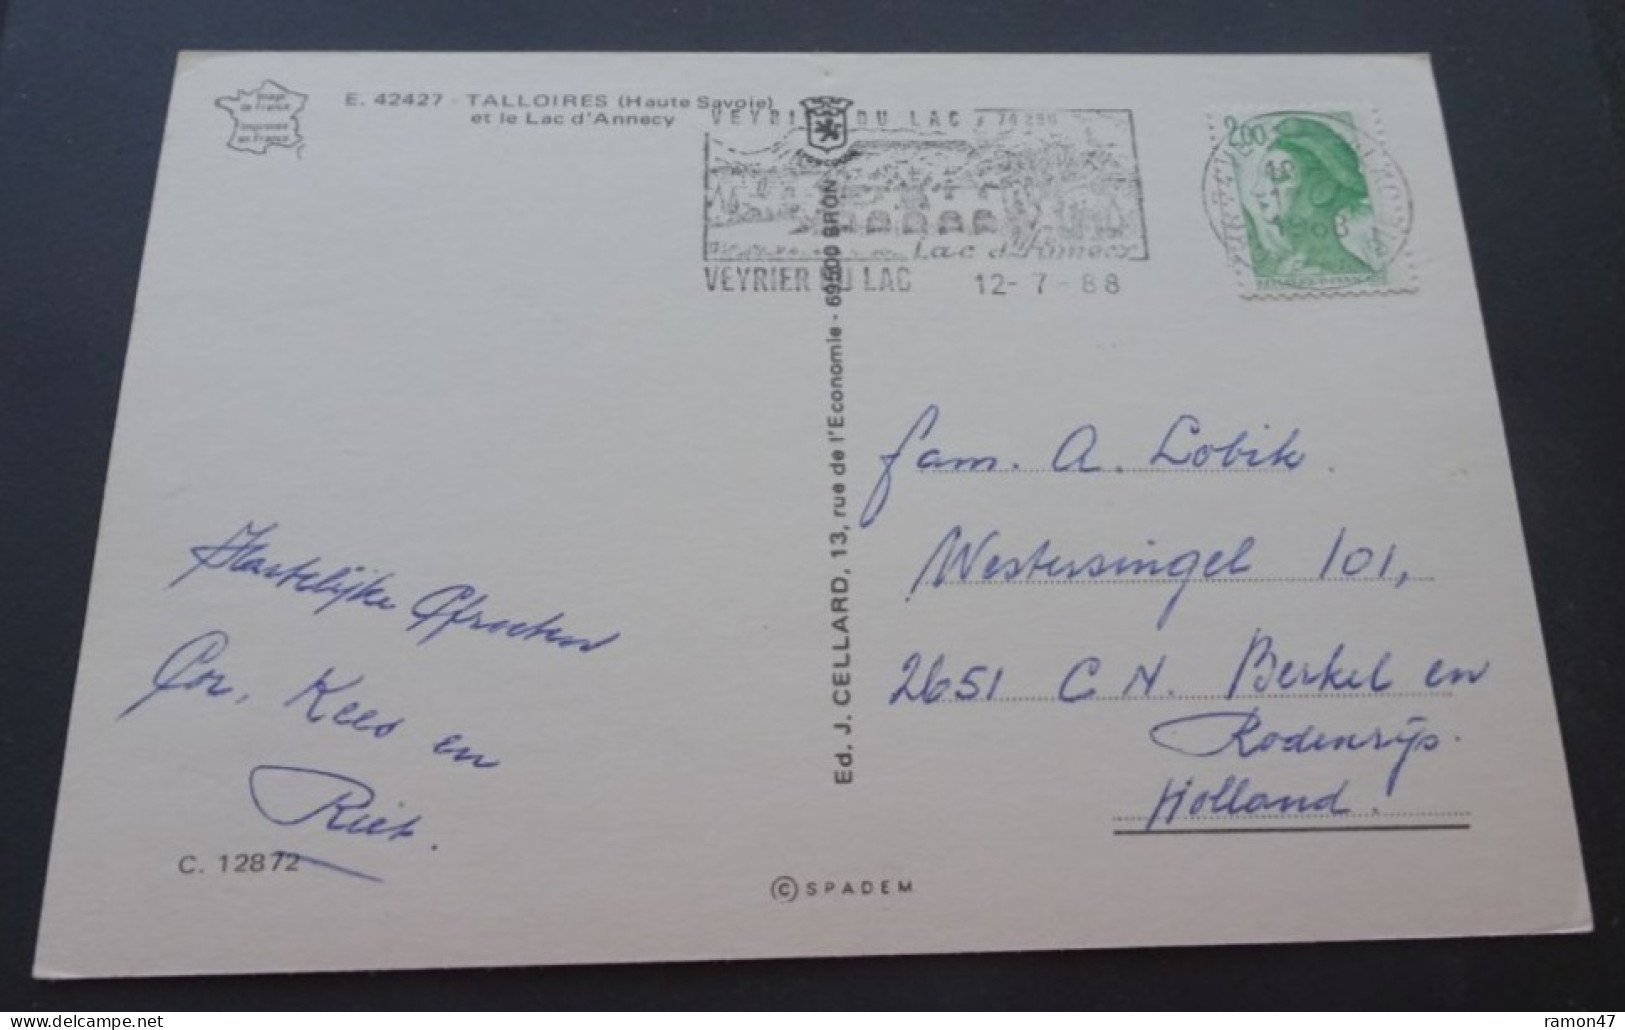 Image
de France
imprimée
en France
E. 42427 - TALLOIRES (Haute Savoie)
et le Lac d'Annecy
VEYRIER DU LAC 74290
Lac d'Annecy
VEYRIER DU LAC 12-7-88
2,00
Ed. J. CELLARD, 13, rue de l'Economie - 69500 BRON
fam. A. Lobik.
Westersingel 101,
2651 C N. Berkel en
Rodenrijs.
Holland.
Hartelijke Groeten
Cor, Kees en
Riet.
C. 12872
© SPADEM
ramon47